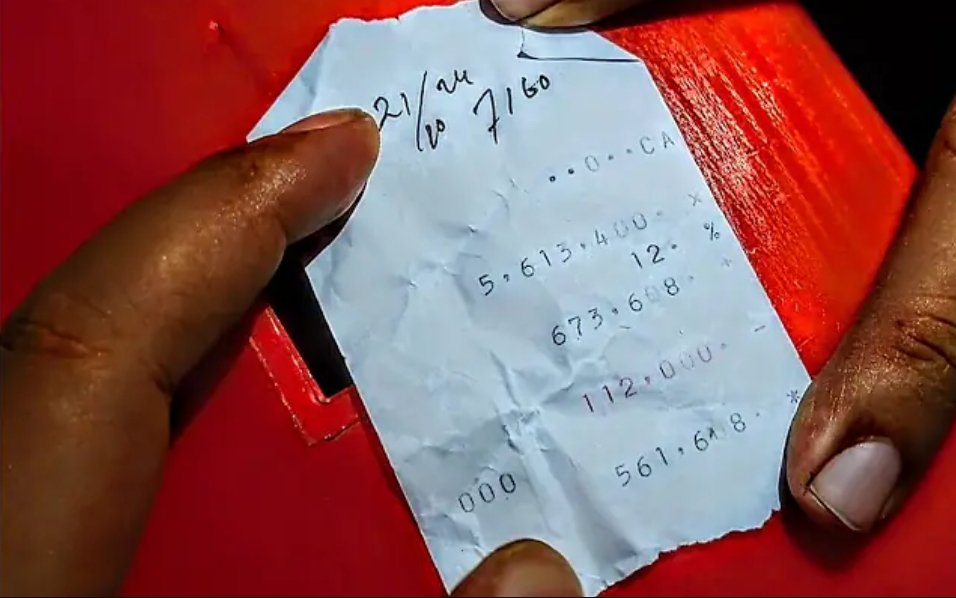 21/10/24 7160
..0..CA
5,613,400. ×
12. %
673,608. +
112,000. -
000 561,608. *